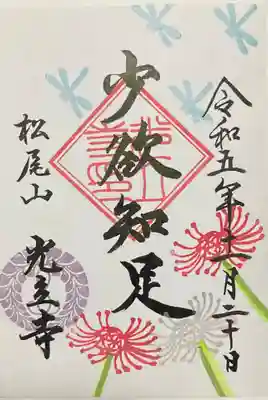 令和五年十一月二十日
少欲知足
松尾山
光立寺